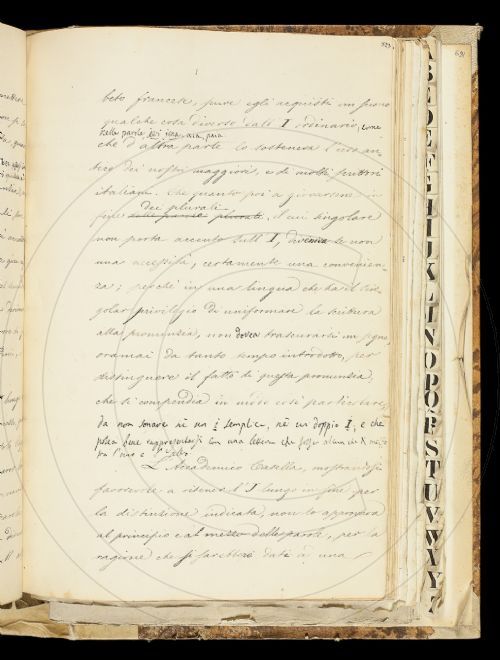 323.
beto francese, pure egli acquisti un suono
qualche cosa diverso dall' I ordinario, come
nelle parole, ieri, aia, paia
che d'altra parte lo sosteneva l'uso an-
tico dei nostri maggiori, e di molti scrittori
italiani. Che quanto poi a giovarsene in
dei plurali
fine delle parole plurali, il cui singolare
non porta accento sull' I, diveniva se non
una necessità, certamente una convenien-
za; perchè in una lingua che ha il sin-
golar privilegio di uniformar la scrittura
alla pronunzia, non dovea trascurarsi un segno
oramai da tanto tempo introdotto, per
distinguere il fatto di questa pronunzia,
che si compendia in modo così particolare,
da non sonare nè un i semplice, nè un doppio I, e che
potea bene rappresentarsi con una lettera che fosse alcun che di mezzo
tra l'uno e l'altro.
L'Accademico Casella, mostrandosi
favorevole a ritenere l'J lungo in fine per
la distinzione indicata, non lo approvava
al principio e al mezzo delle parole, per la
ragione che si sarebbero dati a una
A B C D E F G H I J K L M N O P Q R S T U V W X Y Z